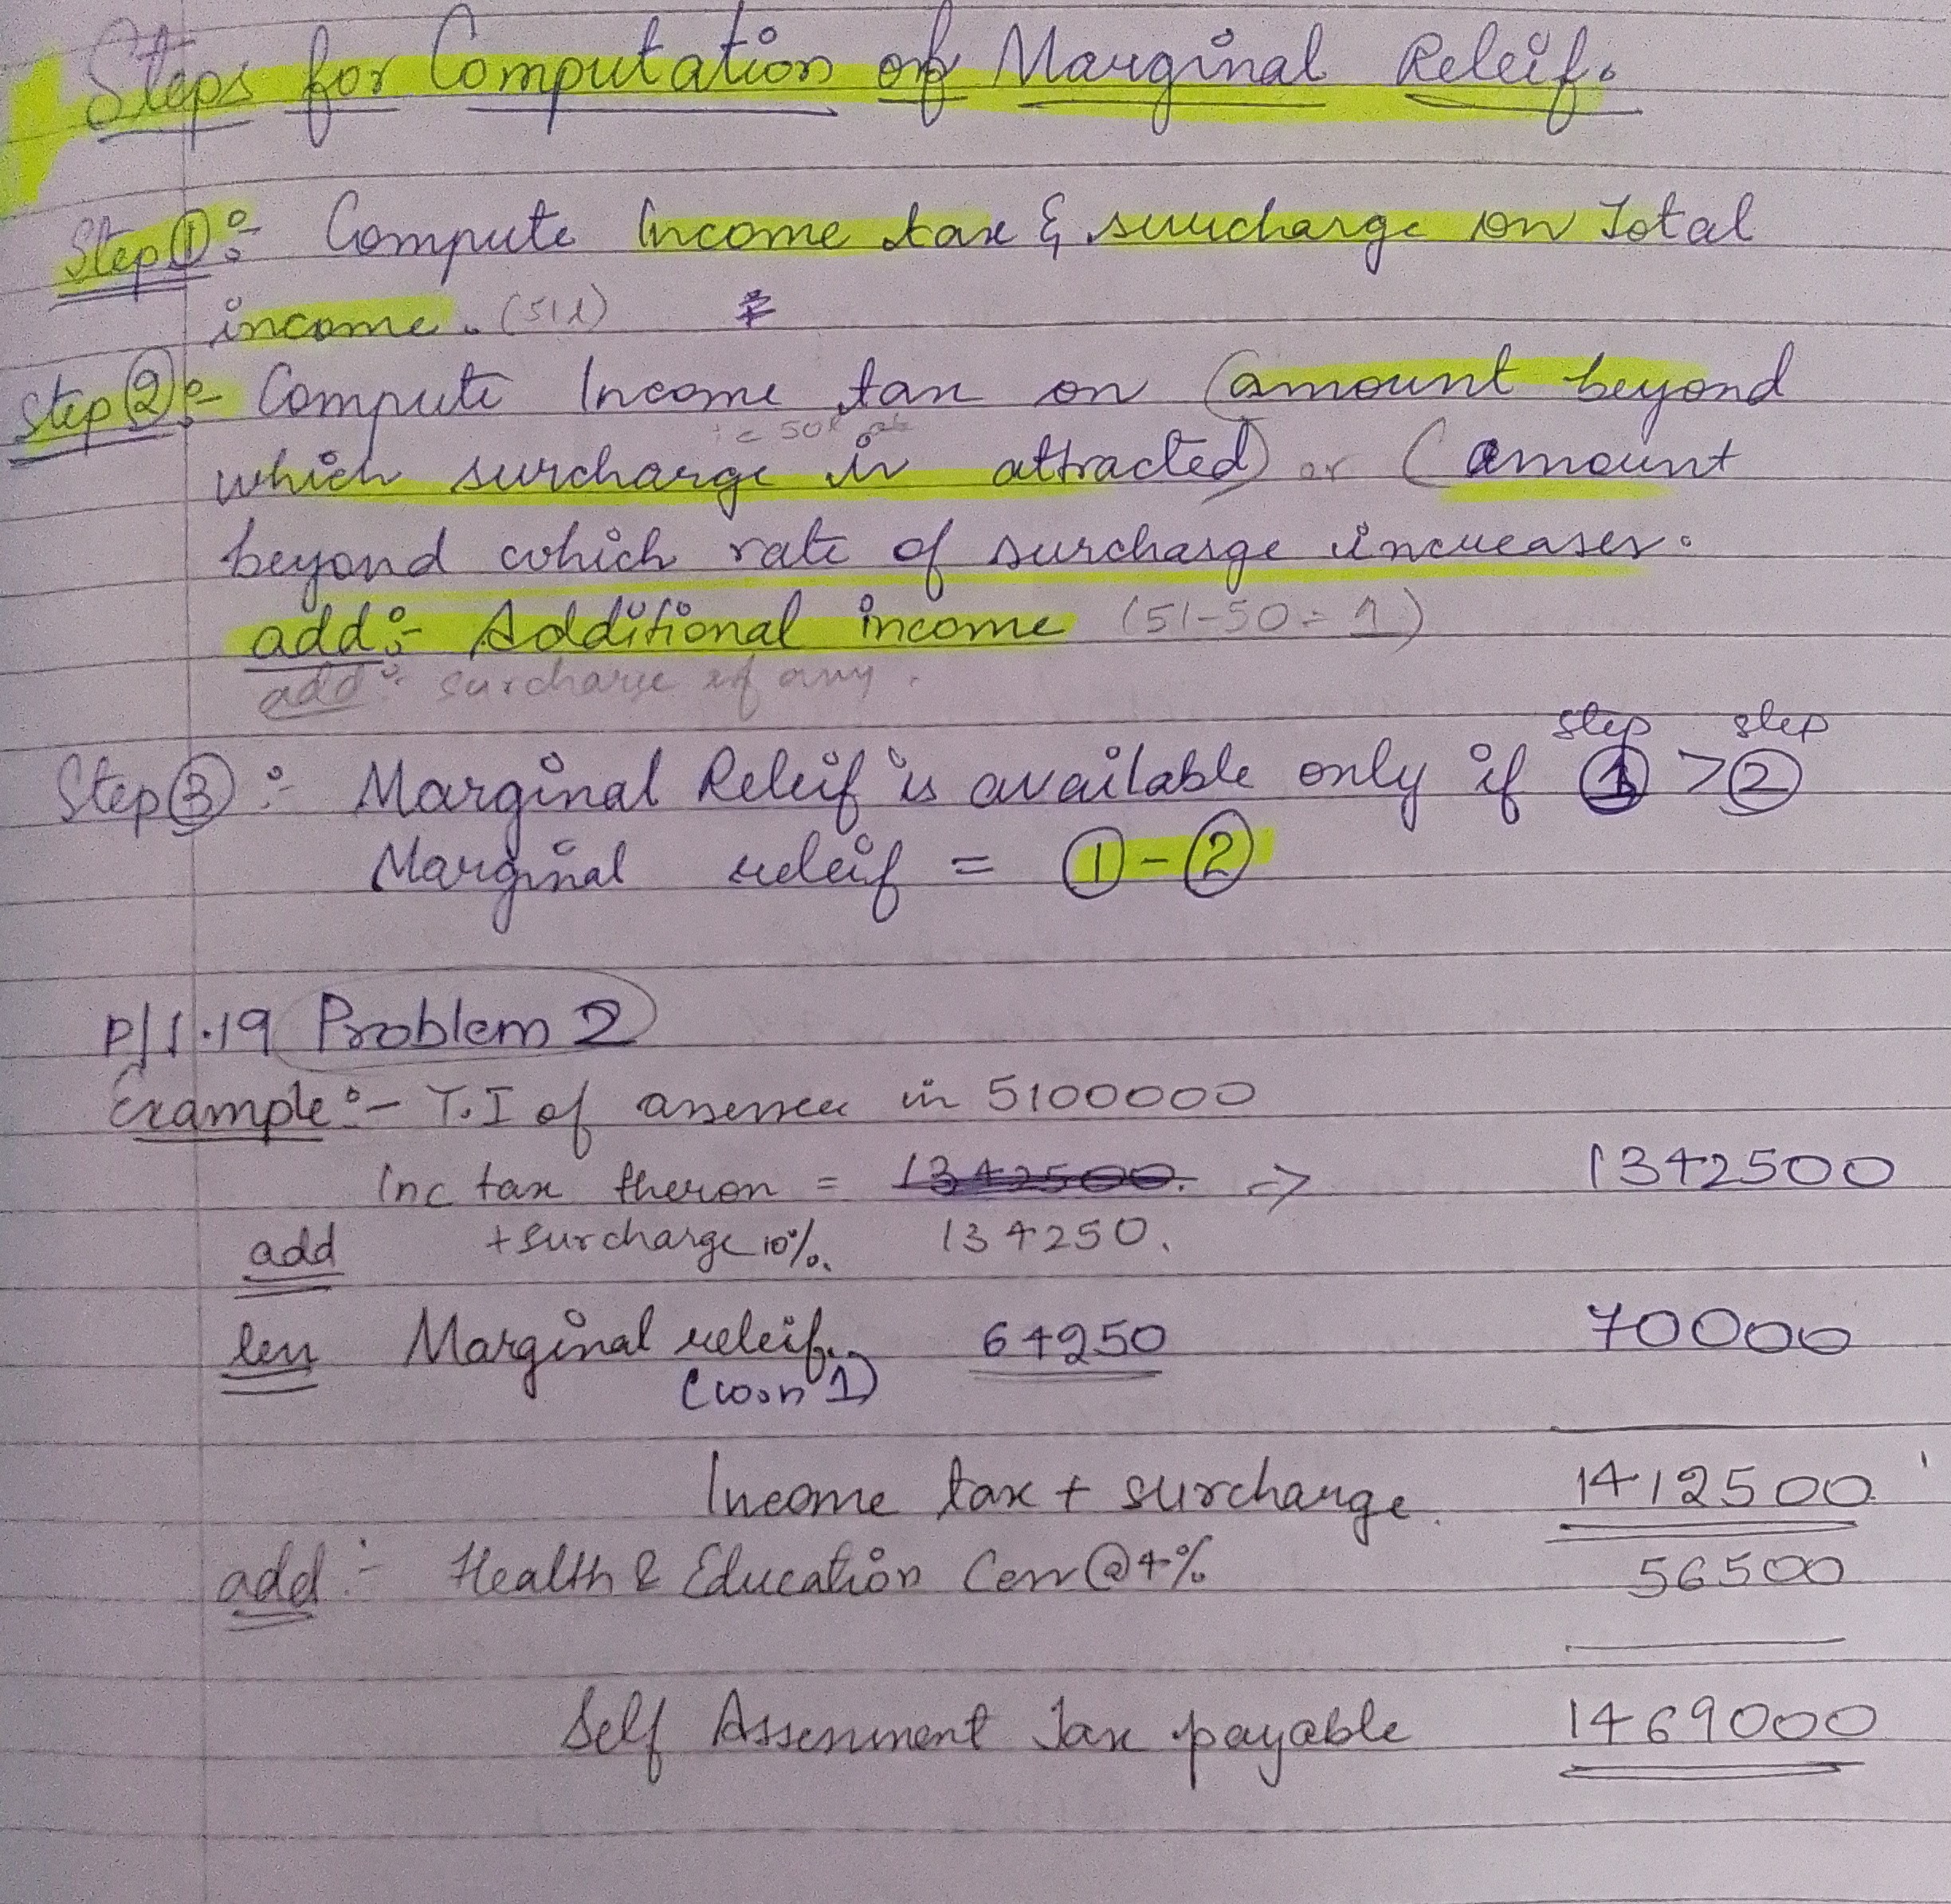 Steps for Computation of Marginal Releif.
Step ① :- Compute Income tax & surcharge on Total
income. (51l)
Step ② :- Compute Income tax on (amount beyond
i e 50l
which surcharge is attracted) or (amount
beyond which rate of surcharge increases.
add :- Additional income (51-50 = 1)
add :- surcharge if any.
step step
Step ③ :- Marginal Releif is available only if ① > ②
Marginal releif = ① - ②
P/1.19 Problem 2
Example :- T.I of assessee is 5100000
Inc tax theron = 1342500. -> 1342500
add + surcharge 10%. 134250.
less Marginal releif. 64250 70000
(w.n 1)
Income tax + surcharge. 1412500
add :- Health & Education Cess @ 4% 56500
Self Assessment Tax payable 1469000